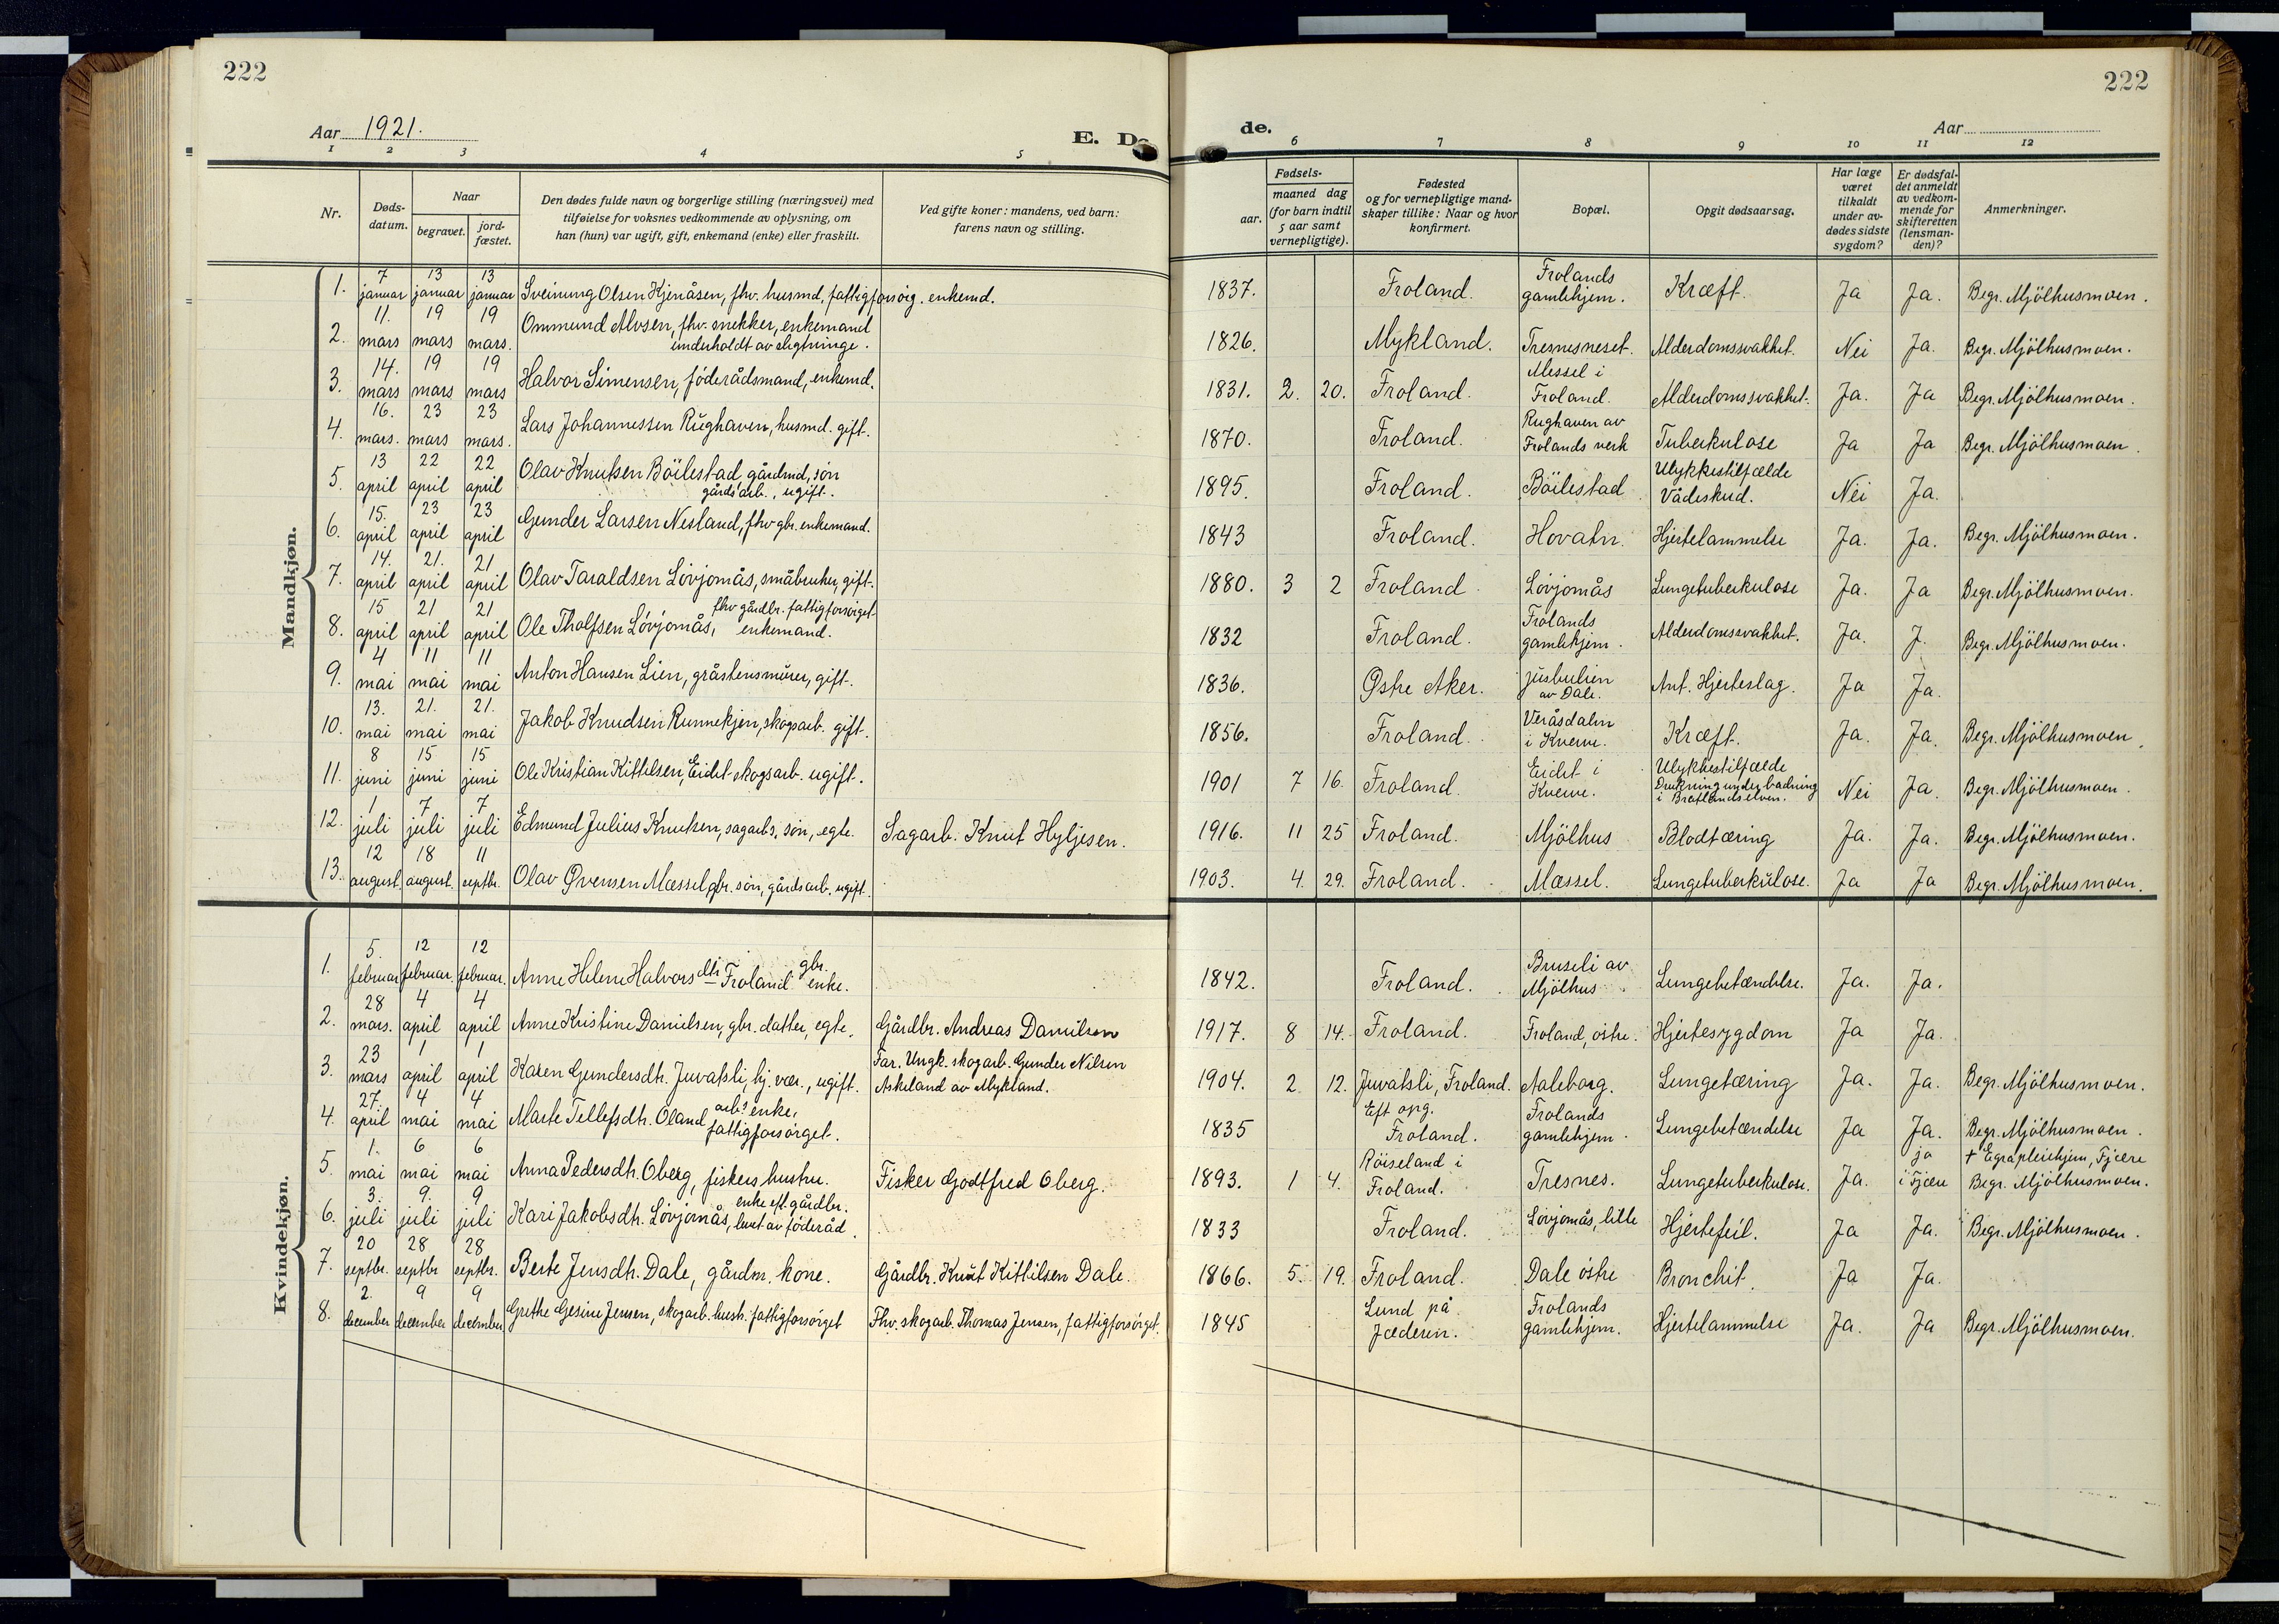 222
222
Aar 1921.
E. Dø
de.
Aar
1 2 3 4 5 6 7 8 9 10 11 12
Nr.
Døds-
datum.
Naar
begravet.
jord-
fæstet.
Den dødes fulde navn og borgerlige stilling (næringsvei) med
tilføielse for voksnes vedkommende av oplysning, om
han (hun) var ugift, gift, enkemand (enke) eller fraskilt.
Ved gifte koner: mandens, ved barn:
farens navn og stilling.
Fødsels-
aar.
maaned dag
(for barn indtil
5 aar samt
vernepligtige).
Fødested
og for vernepligtige mand-
skaper tillike: Naar og hvor
konfirmert.
Bopæl.
Opgit dødsaarsag.
Har læge
været
tilkaldt
under av-
dødes sidste
sygdom?
Er dødsfal-
det anmeldt
av vedkom-
mende for
skifteretten
(lensman-
den)?
Anmerkninger.
Mandkjøn.
1. 7 januar 13 januar 13 januar Sveinung Olsen Kjenåsen, fhv. husmd, fattigforsörg. enkemd. 1837. Froland. Frolands gamlehjem. Kræft. Ja Ja. Begr. Mjölhusmoen.
2. 11. mars 19 mars 19 mars. Ommund Alvsen, fhv. snekker, enkemand underholdt av slegtninge. 1826. Mykland. Tresnesneset. Alderdomssvakhet. Nei Ja. Begr. Mjölhusmoen.
3. 14. mars 19 mars 19 mars Halvor Simensen, föderådsmand, enkemd. 1831. 2. 20. Froland. Messel i Froland. Alderdomssvakhet. Ja. Ja Begr. Mjölhusmoen.
4. 16. mars. 23 mars 23 mars. Lars Johannessen Rughaven, husmd. gift. 1870. Froland. Rughaven av Frolands verk Tuberkulose Ja Ja Begr. Mjölhusmoen.
5. 13 april 22 april 22 april Olav Knutsen Böilestad, gårdmd, sön gårdsarb., ugift. 1895. Froland. Böilestad Ulykkestilfælde Vådeskud. Nei Ja.
6. 15. april 23 april 23 april Gunder Larsen Nesland, fhv gbr. enkemand. 1843 Froland. Hovatn. Hjertelammelse Ja. Ja. Begr. Mjölhusmoen.
7. 14. april 21. april 21 april Olav Taraldsen Lövjomås, småbruker, gift. 1880. 3 2 Froland Lövjomås Lungetuberkulose Ja. Ja Begr. Mjölhusmoen.
8. 15 april 21 april 21 april Ole Tholfsen Lövjomås, fhv gårdbr. fattigforsörget enkemand. 1832 Froland. Frolands gamlehjem. Alderdomssvakhet. Ja. J. Begr. Mjölhusmoen.
9. 4 mai 11 mai 11 mai Anton Hansen Lien, gråstensmurer, gift. 1836. Østre Aker. av Dale. Ant. Hjerteslag. Ja Ja.
10. 13. mai 21. mai 21. mai Jakob Knudsen Runnekjen, skogsarb. gift. 1856. Froland. Veråsdalen i Kverve. Kræft. Ja. Ja. Begr. Mjölhusmoen.
11. 8 juni 15 juni 15 juni Ole Kristian Kittelsen, Eidet skogsarb. ugift. 1901 7 16. Froland. Eidet i Kverve. Ulykkestilfælde Drukning under badning i Bratlandselven. Nei Ja. Begr. Mjölhusmoen.
12. 1 juli 7 juli 7 juli Edmund Julius Knutsen, sagarbs. sön, egte. Sagarb. Knut Hyljesen. 1916. 11 25 Froland. Mjölhus Blodtæring Ja. Ja. Begr. Mjölhusmoen.
13. 12 august. 18 august. 11 septbr. Olav Øvensen Mæssel gbr. sön, gårdsarb. ugift. 1903. 4. 29. Froland. Mæssel. Lungetuberkulose. Ja Ja Begr. Mjölhusmoen.
Kvindekjøn.
1. 5. februar 12 februar. 12 februar. Anne Helene Halvorsdtr Froland gbr. enke. 1842. Froland. Bruseli av Mjölhus Lungebetændelse. Ja. Ja.
2. 28 mars. 4 april 4 april Anne Kristine Danielsen, gbr. datter, egte. Gårdbr. Andreas Danielsen 1917. 8 14. Froland. Froland, östre. Hjertesygdom Ja Ja.
3. 23 mars 1 april 1 april Karen Gundersdtr. Juvatsli, hj. vær., ugift. Far. Ungk. skogarb. Gunder Nilsen Askeland av Mykland. 1904. 2 12. Juvatsli, Froland. Aaleborg. Lungetæring Ja. Ja. Begr. Mjölhusmoen.
4. 27. april 4 mai 4 mai Marte Tellefsdtr. Öland arb? enke, fattigforsörget. 1835 Eft opg. Froland. Frolands gamlehjem. Lungebetændelse Ja Ja. Begr. Mjölhusmoen.
5. 1. mai 6 mai 6 mai Anna Pedersdtr. Oberg, fiskers hustru. Fisker Godtfred Oberg. 1893. 1 4. Röiseland i Froland. Tresnes. Lungetuberkulose. Ja. ja i Fjære † Egra pleiehjem, Fjære Begr. Mjölhusmoen.
6. 3. juli 9. juli 9 juli Kari Jakobsdtr. Lövjomås, enke eft. gårdbr. levet av föderåd. 1833 Froland. Lövjomås, lille Hjertefeil. Ja Ja. Begr. Mjölhusmoen.
7. 20 septbr. 28 septbr 28 septbr. Berte Jensdtr. Dale, gårdm. kone. Gårdbr. Knut Kittilsen Dale. 1866. 5. 19. Froland. Dale östre Bronchit. Ja Ja.
8. 2. december 9 december 9 december Grethe Gesine Jensen, skogarb. hustr. fattigforsörget Fhv. skogarb. Thomas Jensen, fattigforsörget. 1845 Lund på Jæderen. Frolands gamlehjem. Hjertelammelse Ja. Ja Begr. Mjölhusmoen.